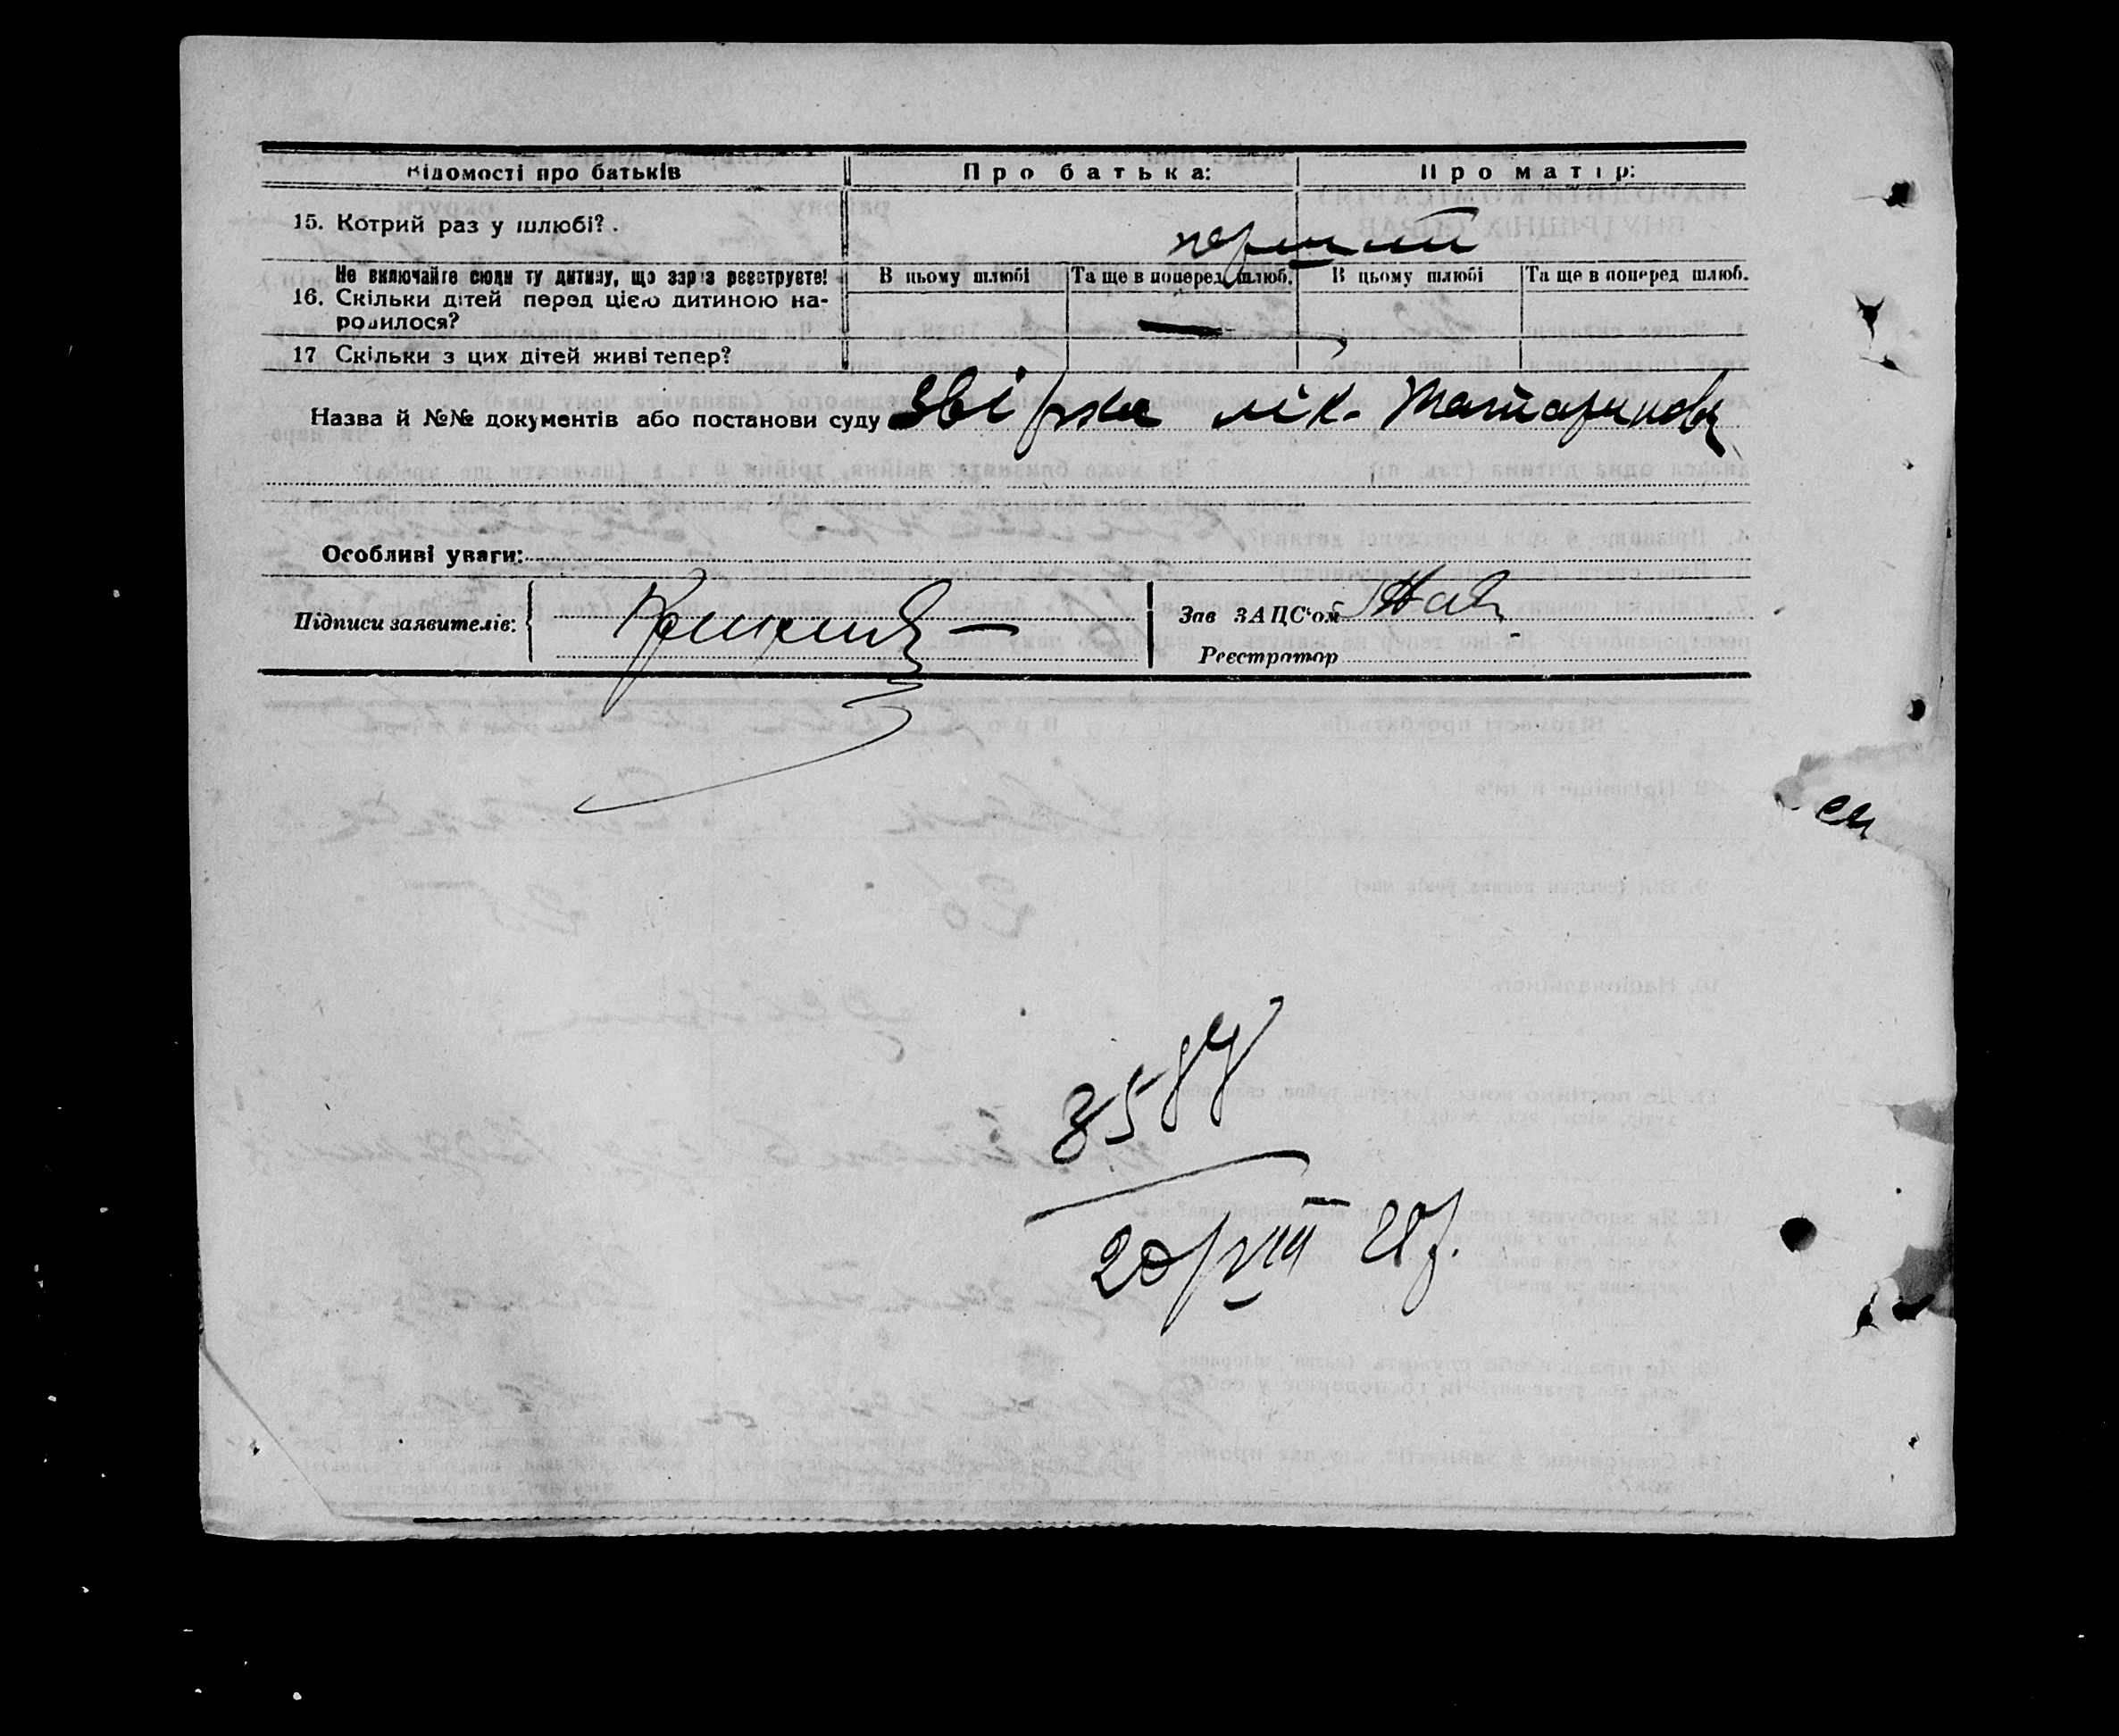 Відомості про батьків Про батька: Про матір:
15. Котрий раз у шлюбі? . перший
Не включайте сюди ту дитину, що зараз реєструєте! В цьому шлюбі Та ще в поперед. шлюб. В цьому шлюбі Та ще в поперед шлюб.
16. Скільки дітей перед цією дитиною на-
родилося? —
17 Скільки з цих дітей живі тепер?
Назва й №№ документів або постанови суду лік. Татаринова
Особливі уваги:
Підписи заявителів: Зав ЗАЦС‘ом
Реєстратор
20/VIII 28 р.